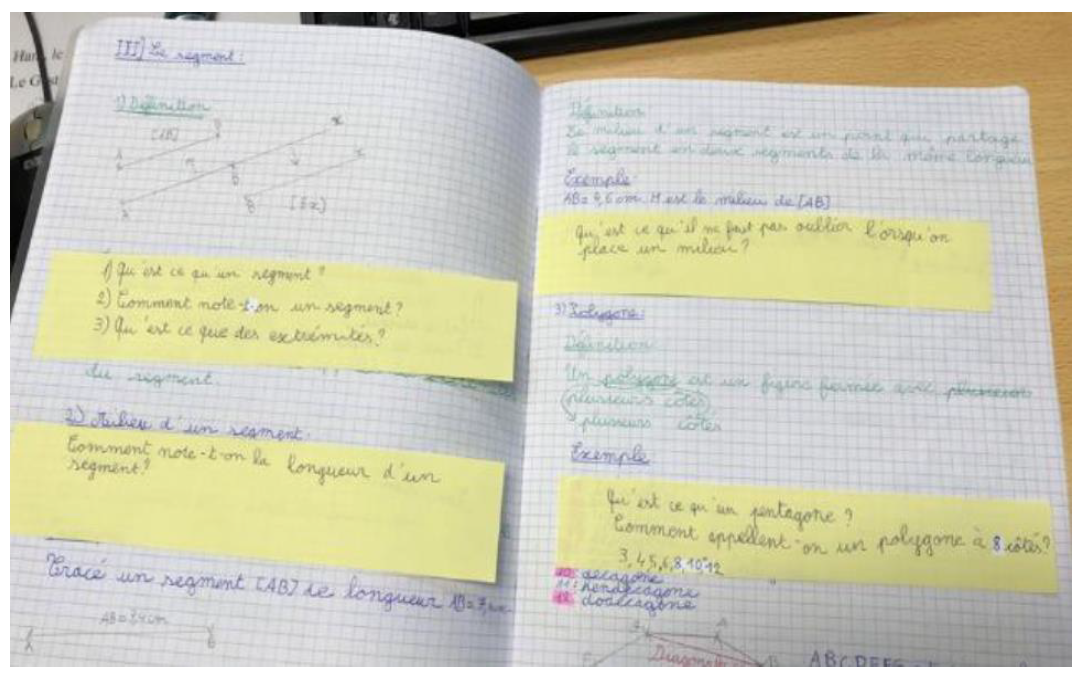 III] Le segment :
1) Définition
[AB]
x
x
[Bx)
1) Qu'est ce qu'un segment ?
2) Comment note-t-on un segment ?
3) Qu'est ce que des extrémités ?
du segment.
2) Milieu d'un segment.
Comment note-t-on la longueur d'un
segment ?
Tracé un segment [AB] de longueur AB=
A B
Définition
Le milieu d'un segment est un point qui partage
le segment en deux segments de la même longueur
Exemple
AB= 4,6cm. M est le milieu de [AB]
Qu'est ce qu'il ne faut pas oublier l'orsqu'on
place un milieu ?
3) Polygone :
Définition
Un polygone est un figure fermée avec
plusieurs côtés
plusieurs côtés
Exemple
Qu'est ce qu'un pentagone ?
Comment appellent-on un polygone à 8 côtés?
3, 4, 5, 6, 8, 10, 12
10: décagone
11: hendécagone
12: dodécagone